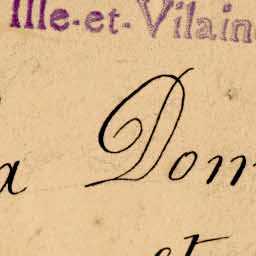 Ille-et-Vilain
a Dom
et